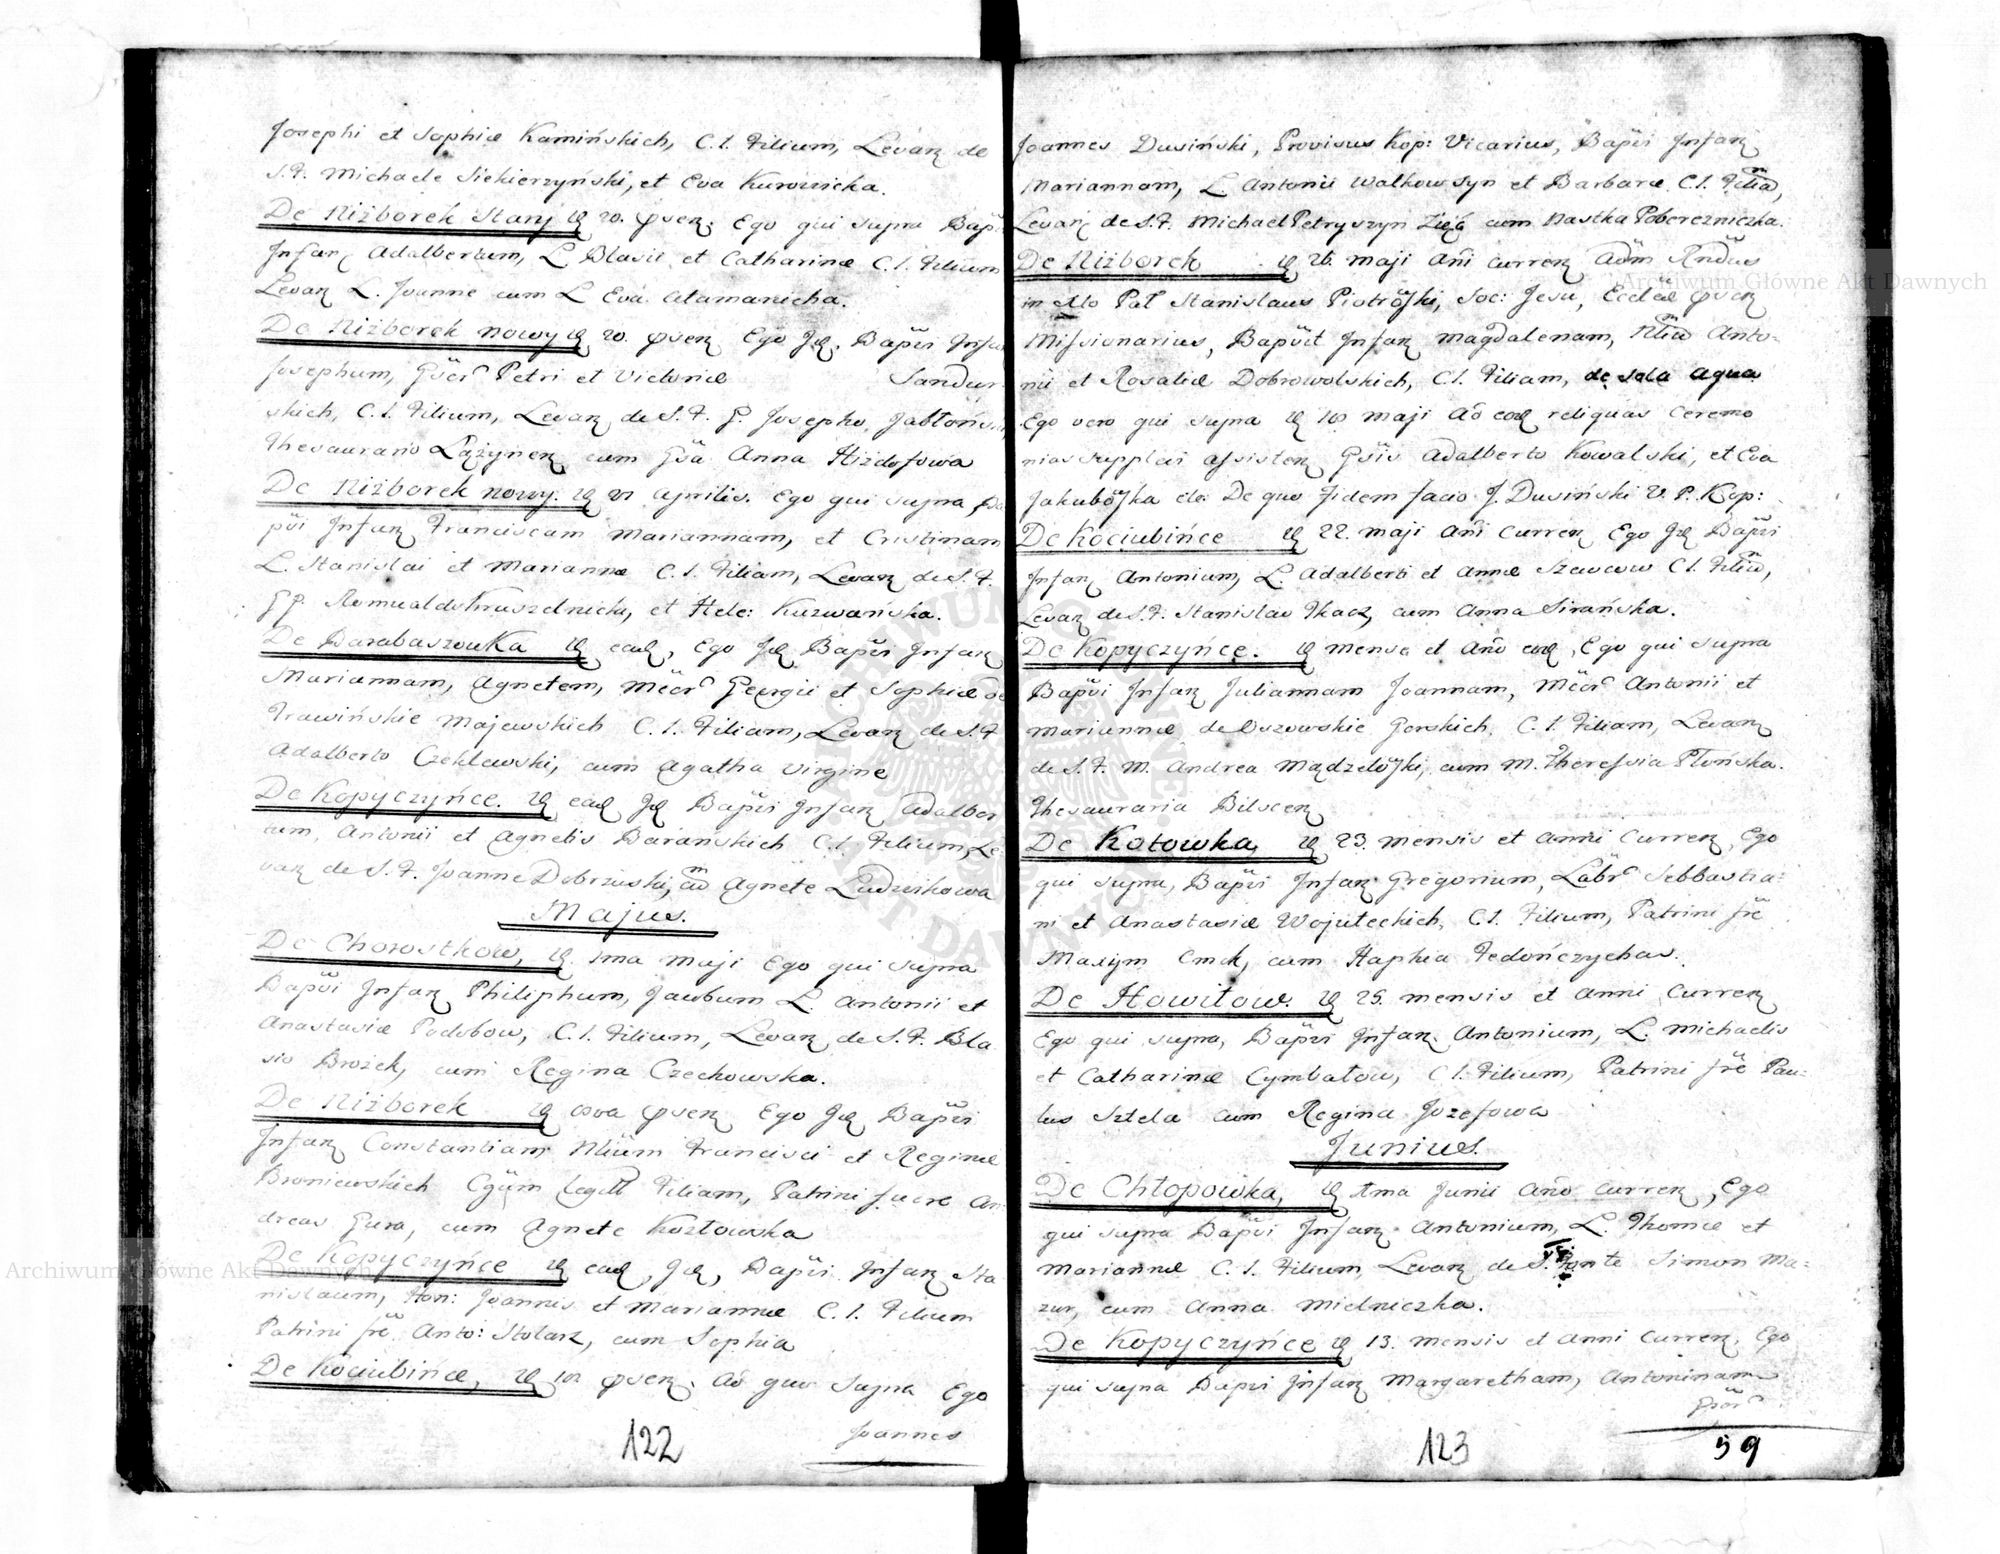 Josephi et Sophiæ Kamińskich, C. l. Filium, Levarz de
S. F. Michaele Siekierzyński, et Eva Kurowicka.
De Niżborek Stary 20. Ego qui supra Bap
Infan Adalbertum, L. Blasii et Catharinæ C. l. Filium
Levan L. Joanne cum L. Eva Atamanicha.
De Niżborek nowy 20. Ego Baptĩ Infa
Josephum, Petri et Victoriæ Sandur
skich, C. l. Filium, Levan de S. F. G. Josepho Jabłońs
Thesaurario cum Anna Hizdefowa
De Niżborek nowy. 21 Aprilis. Ego qui supra Ba
Infan Franciscam Mariannam, et Cristinam
L. Stanislai et Mariannæ C. l. Filiam, Levan de S. F.
GG. Romualdo Kruszelnicki, et Hele: Kurwańska.
De Barabaszouka ead, Ego Bapũ Infan
Mariannam, Agnetem, Georgii et Sophiæ de
Trawińskie Majewskich C. l. Filiam, Levan de S. F.
Adalberto Czeklewski, cum Agatha Virgine
De Kopyczyńce. ead Bapũi Infan Adalber
tum, Antonii et Agnetis Barańskich C. l. Filium, Le
van de S. F. Joanne Dobrzuski, cũ Agnete Ludzikowa
Majus.
De Chorostkow, 1ma Maji Ego qui supra
Bapũi Infan Philiphum, Jacubum L. Antonii et
Anastasiæ Podobow, C. l. Filium, Levan de S. F. Bla
sio Brożek, cum Regina Czechowska.
De Niżborek Ego Bapũi
Infan Constantiam Francisci et Reginæ
Broniewskich Filiam, Patrini fuere An
dreas Gura, cum Agnete Kozłowska
De Kopyczyńce ead, Bapũi Infan Sta
nislaum, Hon: Joannis et Mariannæ C. l. Filium
Patrini Anto: Stolarz, cum Sophia
De Kociubińce, quo supra Ego
Joannes
122
Joannes Dusiński, Provisus Kop: Vicarius, Bapũi Infan
Mariannam, L. Antonii Walkow syn et Barbaræ C. l. Filiã,
Levan de S. F. Michael Petryszyn Zięć cum Nastka Pobereżniczka.
De Niżborek 26. Maji Añi Curren Adm Rñdus
in Xto Pat Stanislaus Piotrõski, Soc: Jesu, Ecclæ
Missionarius, Bapũit Infan Magdalenam, Anto-
nii et Rosaliæ Dobrowolskich, C. l. Filiam, de sola aqua
Ego vero qui supra Maji Aõ eod reliquas Ceremo
nias supplevi assisten Adalberto Kowalski, et Eva
Jakubõska De quo fidem facio J. Dusiński V. P. Kop:
De Kociubińce 22. Maji Añi Curren Ego Bapũi
Infan Antonium, L. Adalberti et Annæ Szewcow C. l. Filiũ,
Levan de S. F. Stanislao Tkacz, cum Anna Sirańska.
De Kopyczyńce. mense et Año eod, Ego qui supra
Bapũi Infan Juliannam Joannam, Antonii et
Mariannæ de Oszowskie Gorskich, C. l. Filiam, Levan
de S. F. M. Andrea Mądzelõski, cum M. Theressia Płońska.
Thesauraria Bilscen
De Kotowka, 23. mensis et anni Curren, Ego
qui supra, Bapũi Infan Gregorium, Labr Sebbastia:
ni et Anastasiæ Wojuteckich, C. l. Filium, Patrini
Maxym cum Haphia Fedończychas.
De Howiłow. 25. mensis et anni Curren
Ego qui supra, Bapũi Infan Antonium, L. Michaelis
et Catharinæ Cymbałow, C. l. Filium, Patrini Pau-
lus Sztela cum Regina Jozefowa
Junius.
De Chłopowka, 1ma Junii Año Curren, Ego
qui supra Bapũi Infan Antonium, L. Thomæ et
Mariannæ C. l. Filium, Levan de S. Fonte Simon Ma:
zur, cum Anna Mielniczka.
De Kopyczyńce 13. mensis et anni Curren, Ego
qui supra Bapũi Infan Margaretham, Antoninam
123
59
Archiwum Główne Akt Dawnych
Archiwum Główne Akt Dawnych